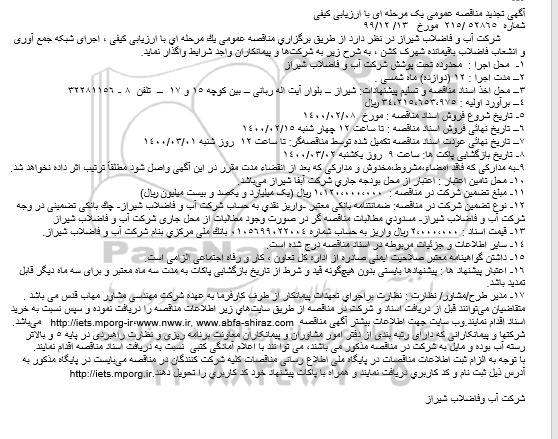 آگهی تجدید مناقصه عمومی یک مرحله ای با ارزیابی کیفی
شماره ۲۱۵/۵۲۸۶۵ مورخ ۹۹/۱۲/۱۳
شرکت آب و فاضلاب شیراز در نظر دارد از طریق برگزاري مناقصه عمومي یك مرحله اي با ارزیابی کیفی ، اجرای شبکه جمع آوری
و انشعاب فاضلاب باقیمانده شهرک گلشن ، به شرح زیر به شرکت‌ها و پیمانکاران واجد شرایط واگذار نماید.
۱- محل اجرا : محدوده تحت پوشش شرکت آب و فاضلاب شیراز
۲- مدت اجرا : ۱۲ (دوازده) ماه شمسی .
۳- محل اخذ اسناد مناقصه و تسلیم پیشنهادات: شیراز – بلوار آیت اله ربانی – بین کوچه ۱۵ و ۱۷ – تلفن ۸ - ۳۲۲۸۱۱۵۶
۴- برآورد اولیه : ۳۴،۲۱۵،۶۵۳،۹۷۵ ریال
۵- تاریخ شروع فروش اسناد مناقصه : مورخ ۱۴۰۰/۰۲/۰۸
۶- تاریخ نهائی فروش اسناد مناقصه : تا ساعت ۱۲ چهار شنبه ۱۴۰۰/۰۲/۱۵
۷- تاریخ نهائی عودت اسناد مناقصه تکمیل شده توسط مناقصه‌گر: تا ساعت ۱۲ روز شنبه ۱۴۰۰/۰۳/۰۱
۸- تاریخ بازگشایی پاکت ها: ساعت ۹ روز یکشنبه ۱۴۰۰/۰۳/۰۲
۹-به مدارکی که فاقد امضاء،مشروط،مخدوش و مدارکی که بعد از انقضاء مدت مقرر در این آگهی واصل شود مطلقاً ترتیب اثر داده نخواهد شد.
۱۰- محل تأمین اعتبار : اعتبار از محل بودجه جاري شرکت آبفا شیراز می‌باشد
۱۱- مبلغ تضمین شرکت در مناقصه : ۱،۱۲۰،۰۰۰،۰۰۰ ریال (یک میلیارد و یکصد و بیست میلیون ریال)
۱۲- نوع تضمین شرکت در مناقصه: ضمانتنامه بانکی معتبر -واریز نقدي به حساب شرکت آب و فاضلاب شیراز- چك بانكي تضمینی در وجه
شرکت آب و فاضلاب شیراز- مسدودي مطالبات مناقصه گر در صورت وجود مطالبات از محل جاری شرکت آب و فاضلاب شیراز
۱۳- قیمت اسناد : ۲،۰۰۰،۰۰۰ ریال واریز به حساب شماره ۰۱۰۵۶۹۹۰۲۲۰۰۴ بانك ملي مرکزي بنام شرکت آب و فاضلاب شیراز.
۱۴- سایر اطلاعات و جزئیات مربوطه در اسناد مناقصه درج شده است.
۱۵- داشتن گواهینامه معتبر صلاحیت ایمنی صادره از اداره کل تعاون ، کار و رفاه اجتماعی الزامی است.
۱۶- اعتبار پیشنهاد ها : پیشنهادها بایستی بدون هیچ‌گونه قید و شرط از تاریخ بازگشایی پاکات به مدت سه ماه معتبر و برای سه ماه دیگر قابل
تمدید باشد.
۱۷- مدیر طرح/مشاور/ نظارت : نظارت براجراي تعهدات پیمانکار از طرف کارفرما به عهده شرکت مهندسی مشاور مهاب قدس می باشد .
متقاضیان می‌توانند قبل از دریافت اسناد و شرکت در مناقصه از طریق سایت‌های زیر اطلاعات مناقصه را دریافت نموده و سپس نسبت به خرید
اسناد اقدام نمایند.وب سایت جهت اطلاعات بیشتر آگهی مناقصه http://iets.mporg-ir،www.nww.ir, www.abfa-shiraz.com می‌باشد.
شرکتها و پیمانکارانی که دارای رتبه بندی از دفتر امور مشاوران و پیمانکاران معاونت برنامه ریزی و نظارت راهبردی در پایه ۵ و بالاتر
رسته آب بوده و مایل به شرکت در مناقصه مذکور می باشند، می توانند با اعلام آمادگی کتبی نسبت به دریافت اسناد مناقصه اقدام نمایند.
با توجه به الزام ثبت اطلاعات مناقصات در پایگاه ملي اطلاع رساني مناقصات کلیه شرکت کنندگان در مناقصه مي‌بایست در پایگاه مذکور به
آدرس ذیل ثبت نام و کد کاربري دریافت نمایند و همراه با پاکات پیشنهاد خود کد کاربري را تحویل دهند.http://iets.mporg.ir
شرکت آب وفاضلاب شیراز